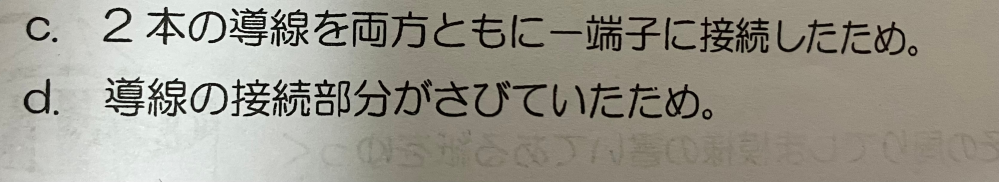 c. 2本の導線を両方ともに－端子に接続したため。
d. 導線の接続部分がさびていたため。